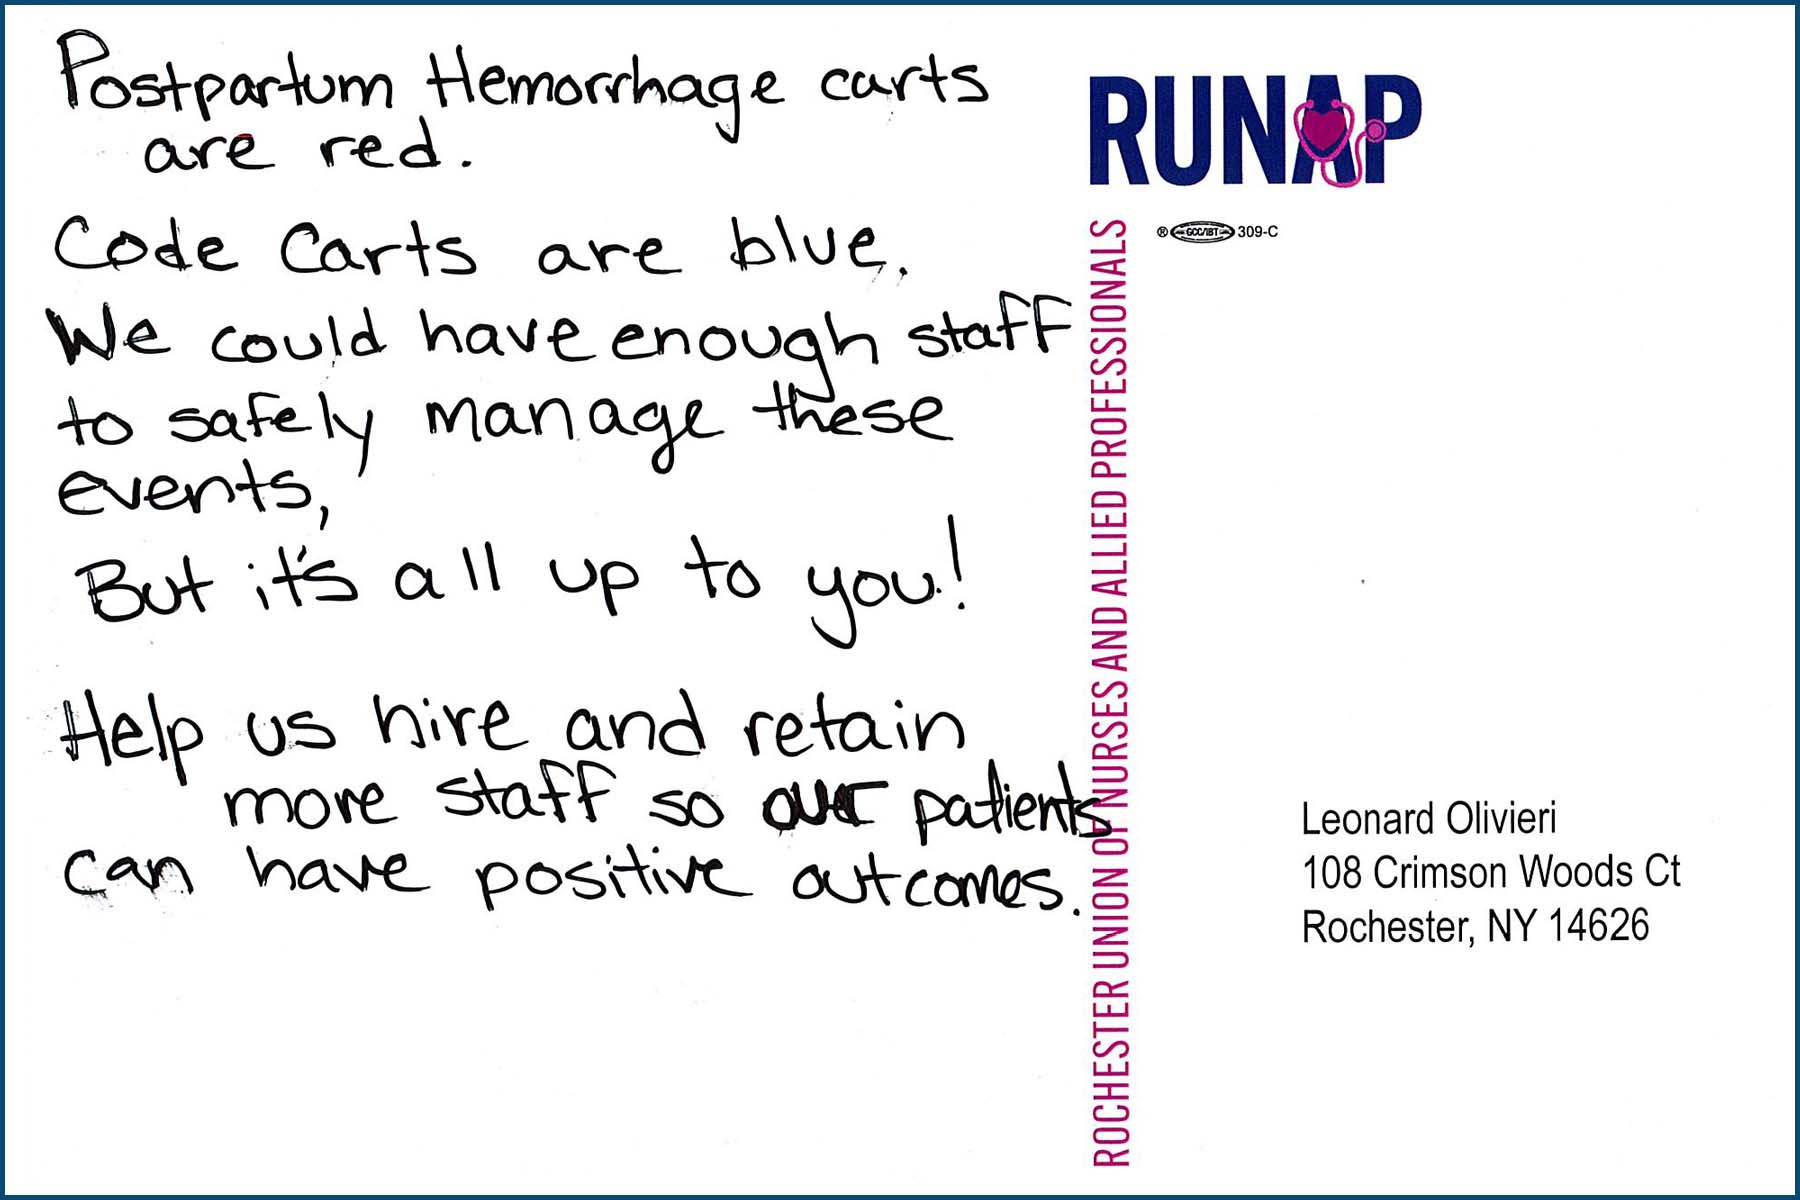 Postpartum Hemorrhage carts
are red.
Code Carts are blue.
We could have enough staff
to safely manage these
events,
But it's all up to you!
Help us hire and retain
more staff so our patients
can have positive outcomes.
RUNAP
® GCC/IBT 309-C
ROCHESTER UNION OF NURSES AND ALLIED PROFESSIONALS
Leonard Olivieri
108 Crimson Woods Ct
Rochester, NY 14626